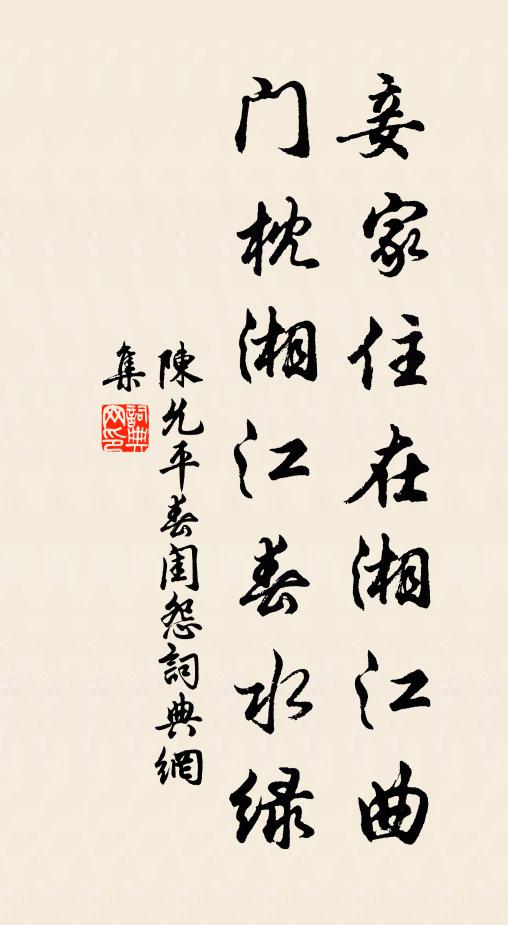 妾家住在湘江曲
门枕湘江春水绿
陳允平春閨怨詞典網
集
詞典
网印